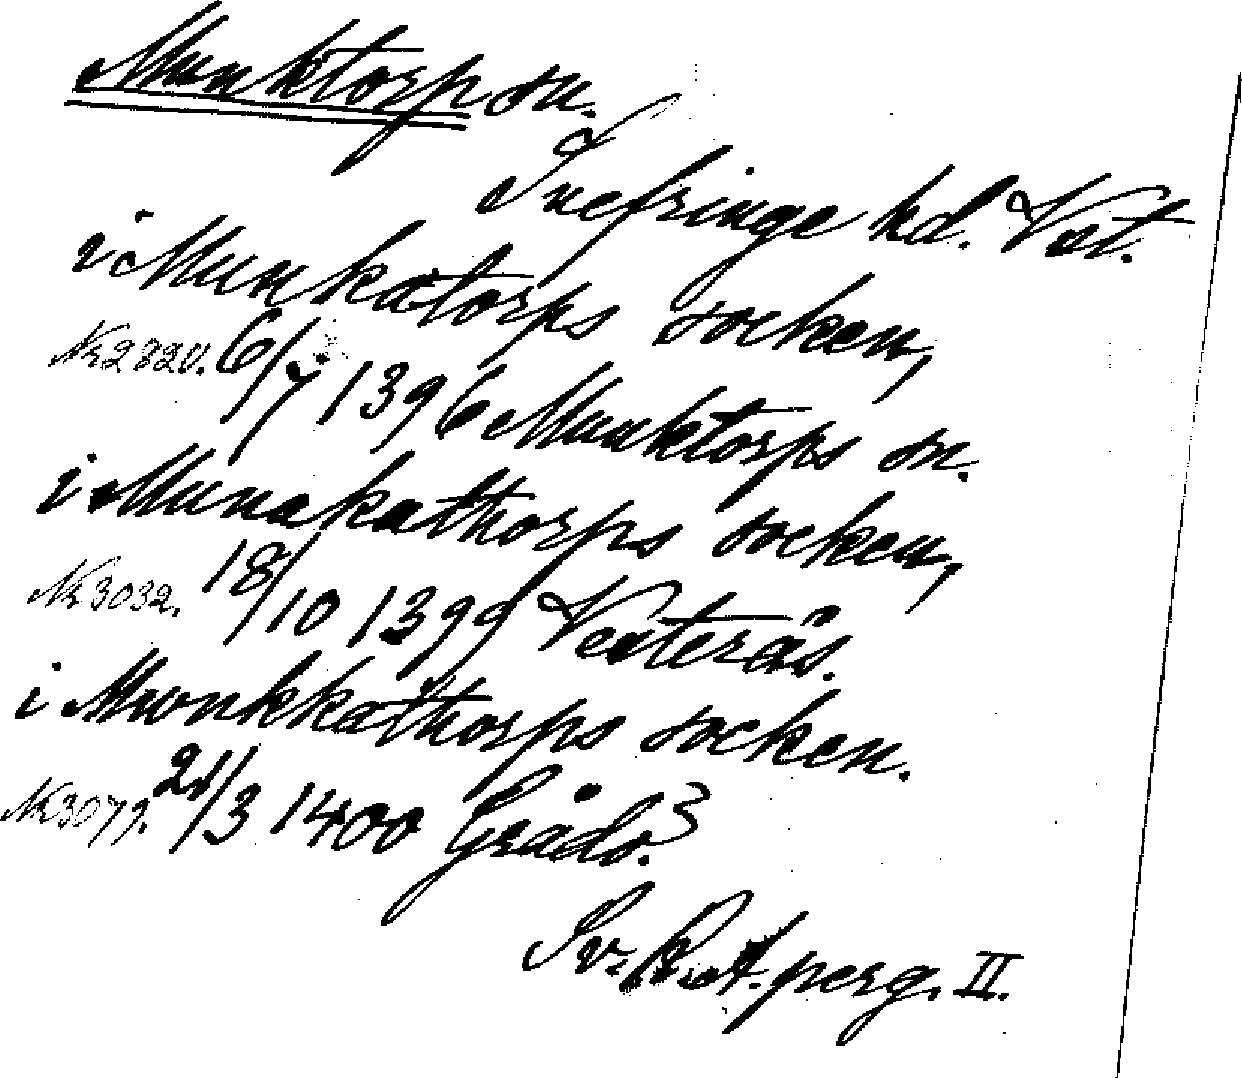 Munktorp sn.
Snefringe hd. Vst.
i Munkatorps socken,
Nr 2820. 6/7 1396 Munktorps sn.
i Munakathorps socken,
Nr 3032. 18/10 1399 Vesterås.
i Mwnkkathorps socken.
Nr 3079. 21/3 1400 Grådö.
Sv. R. A. perg. II.